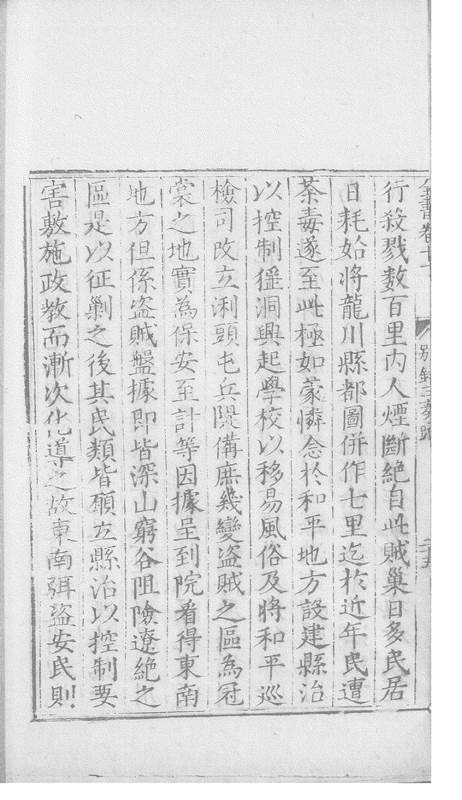 全書卷十一 別錄三奏疏 二十五
行殺戮数百里内人煙斷絶自此賊巢日多民居
日耗始將龍川縣都圖併作七里迄於近年民遭
荼毒遂至此極如蒙憐念於和平地方設建縣治
以控制猺洞興起學校以移易風俗及將和平巡
檢司改立浰頭屯兵隄備庶幾變盗賊之區為冠
裳之地實為保安至計等因據呈到院看得東南
地方但係盗賊盤據即皆深山窮谷阻險遼絶之
區是以征剿之後其民類皆願立縣治以控制要
害敷施政教而漸次化導之故東南弭盗安民則